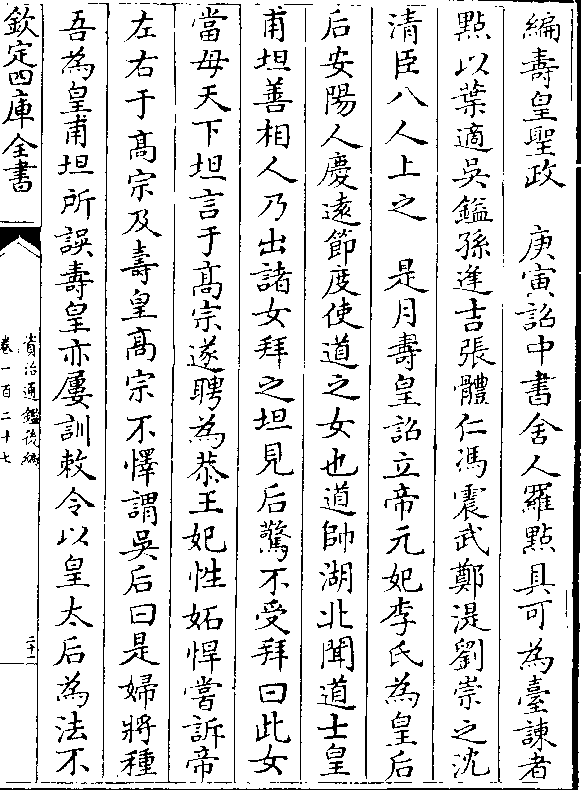 編壽皇聖政　庚寅詔中書舍人羅點具可為臺諫者
點以葉適吳鎰孫逢吉張體仁馮震武鄭湜劉崇之沈
清臣八人上之　是月壽皇詔立帝元妃李氏為皇后
后安陽人慶遠節度使道之女也道帥湖北聞道士皇
甫坦善相人乃出諸女拜之坦見后驚不受拜曰此女
當母天下坦言于髙宗遂聘為恭王妃性妬悍嘗訴帝
左右于髙宗及壽皇髙宗不懌謂吳后曰是婦將種
吾為皇甫坦所誤壽皇亦屢訓敕令以皇太后為法不
欽定四庫全書
資治通鑑後編
卷一百二十七
二十一